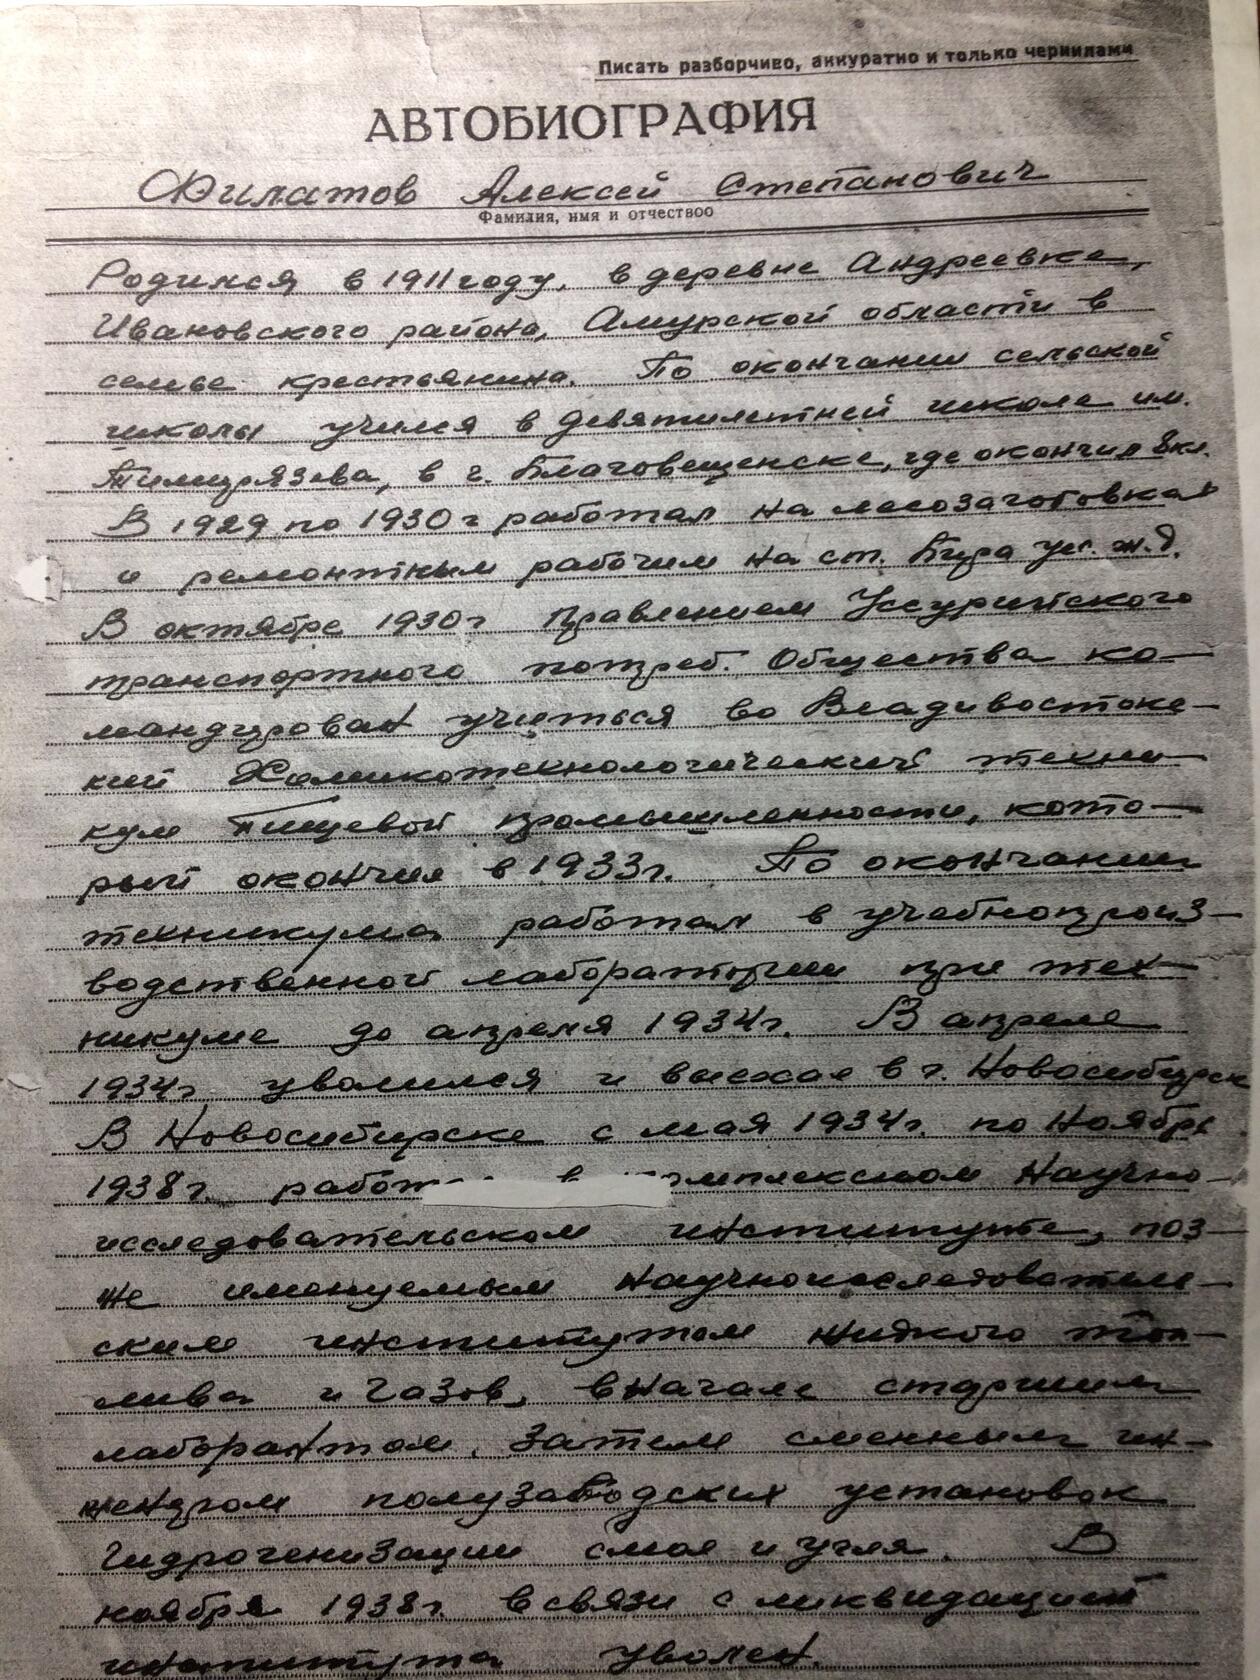 Писать разборчиво, аккуратно и только чернилами
АВТОБИОГРАФИЯ
Филатов Алексей Степанович
Фамилия, имя и отчествоо
Родился в 1911 году, в деревне Андреевке,
Ивановского района, Амурской области в
семье крестьянина. По окончании сельской
школы учился в девятилетней школе им.
Тимирязева, в г. Благовещенске, где окончил 8 кл.
В 1929 по 1930 г работал на лесозаготовках
и ремонтным рабочим на ст. Бира ус. ж.д.
В октябре 1930 г Правлением Уссурийского
транспортного потреб. Общества ко-
мандирован учиться во Владивостокс-
кий Химикотехнологический техни-
кум Пищевой промышленности, кото-
рый окончил в 1933 г. По окончании
техникума работал в учебнопроиз-
водственной лаборатории при тех-
никуме до апреля 1934 г. В апреле
1934 г уволился и выехал в г. Новосибирск
В Новосибирске с мая 1934 г. по ноябрь
1938 г. в комплексном Научно-
исследовательском институте, поз-
же именуемым Научноисследователь-
ским институтом жидкого топ-
лива и газов, вначале старшим
лаборантом, затем сменным ин-
женером полузаводских установок
гидрогенизации смол и угля. В
ноябре 1938 г. в связи с ликвидацией
института уволен.